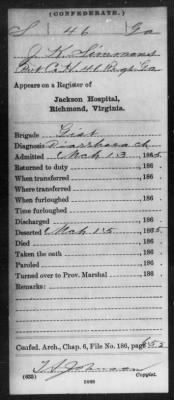 (CONFEDERATE.)
S 46 Ga
J. K. Simmons
Pvt Co H. 46 Regt. Ga
Appears on a Register of
Jackson Hospital,
Richmond, Virginia.
Brigade Gist
Diagnosis Diarrhoea ch
Admitted Mch 13, 1865.
Returned to duty , 186 .
When transferred , 186 .
Where transferred
When furloughed , 186 .
Time furloughed
Discharged , 186 .
Deserted Mch 15, 1865.
Died , 186 .
Taken the oath , 186 .
Paroled , 186 .
Turned over to Prov. Marshal , 186 .
Remarks:
Confed. Arch., Chap. 6, File No. 186, page 652
T. S. Johnson
(635) Copyist.